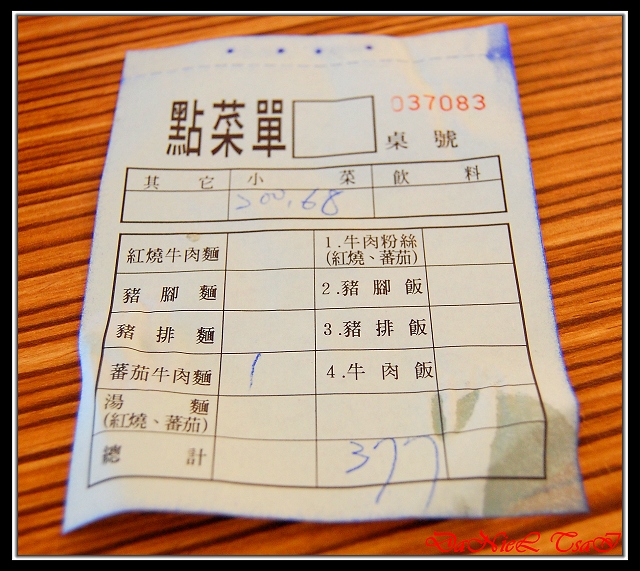 點菜單 037083
桌號
其它 小菜 飲料
200.68
紅燒牛肉麵 1.牛肉粉絲
(紅燒、蕃茄)
豬腳麵 2.豬腳飯
豬排麵 3.豬排飯
蕃茄牛肉麵 1 4.牛肉飯
湯麵
(紅燒、蕃茄)
總計 377
DaNieL TsaI